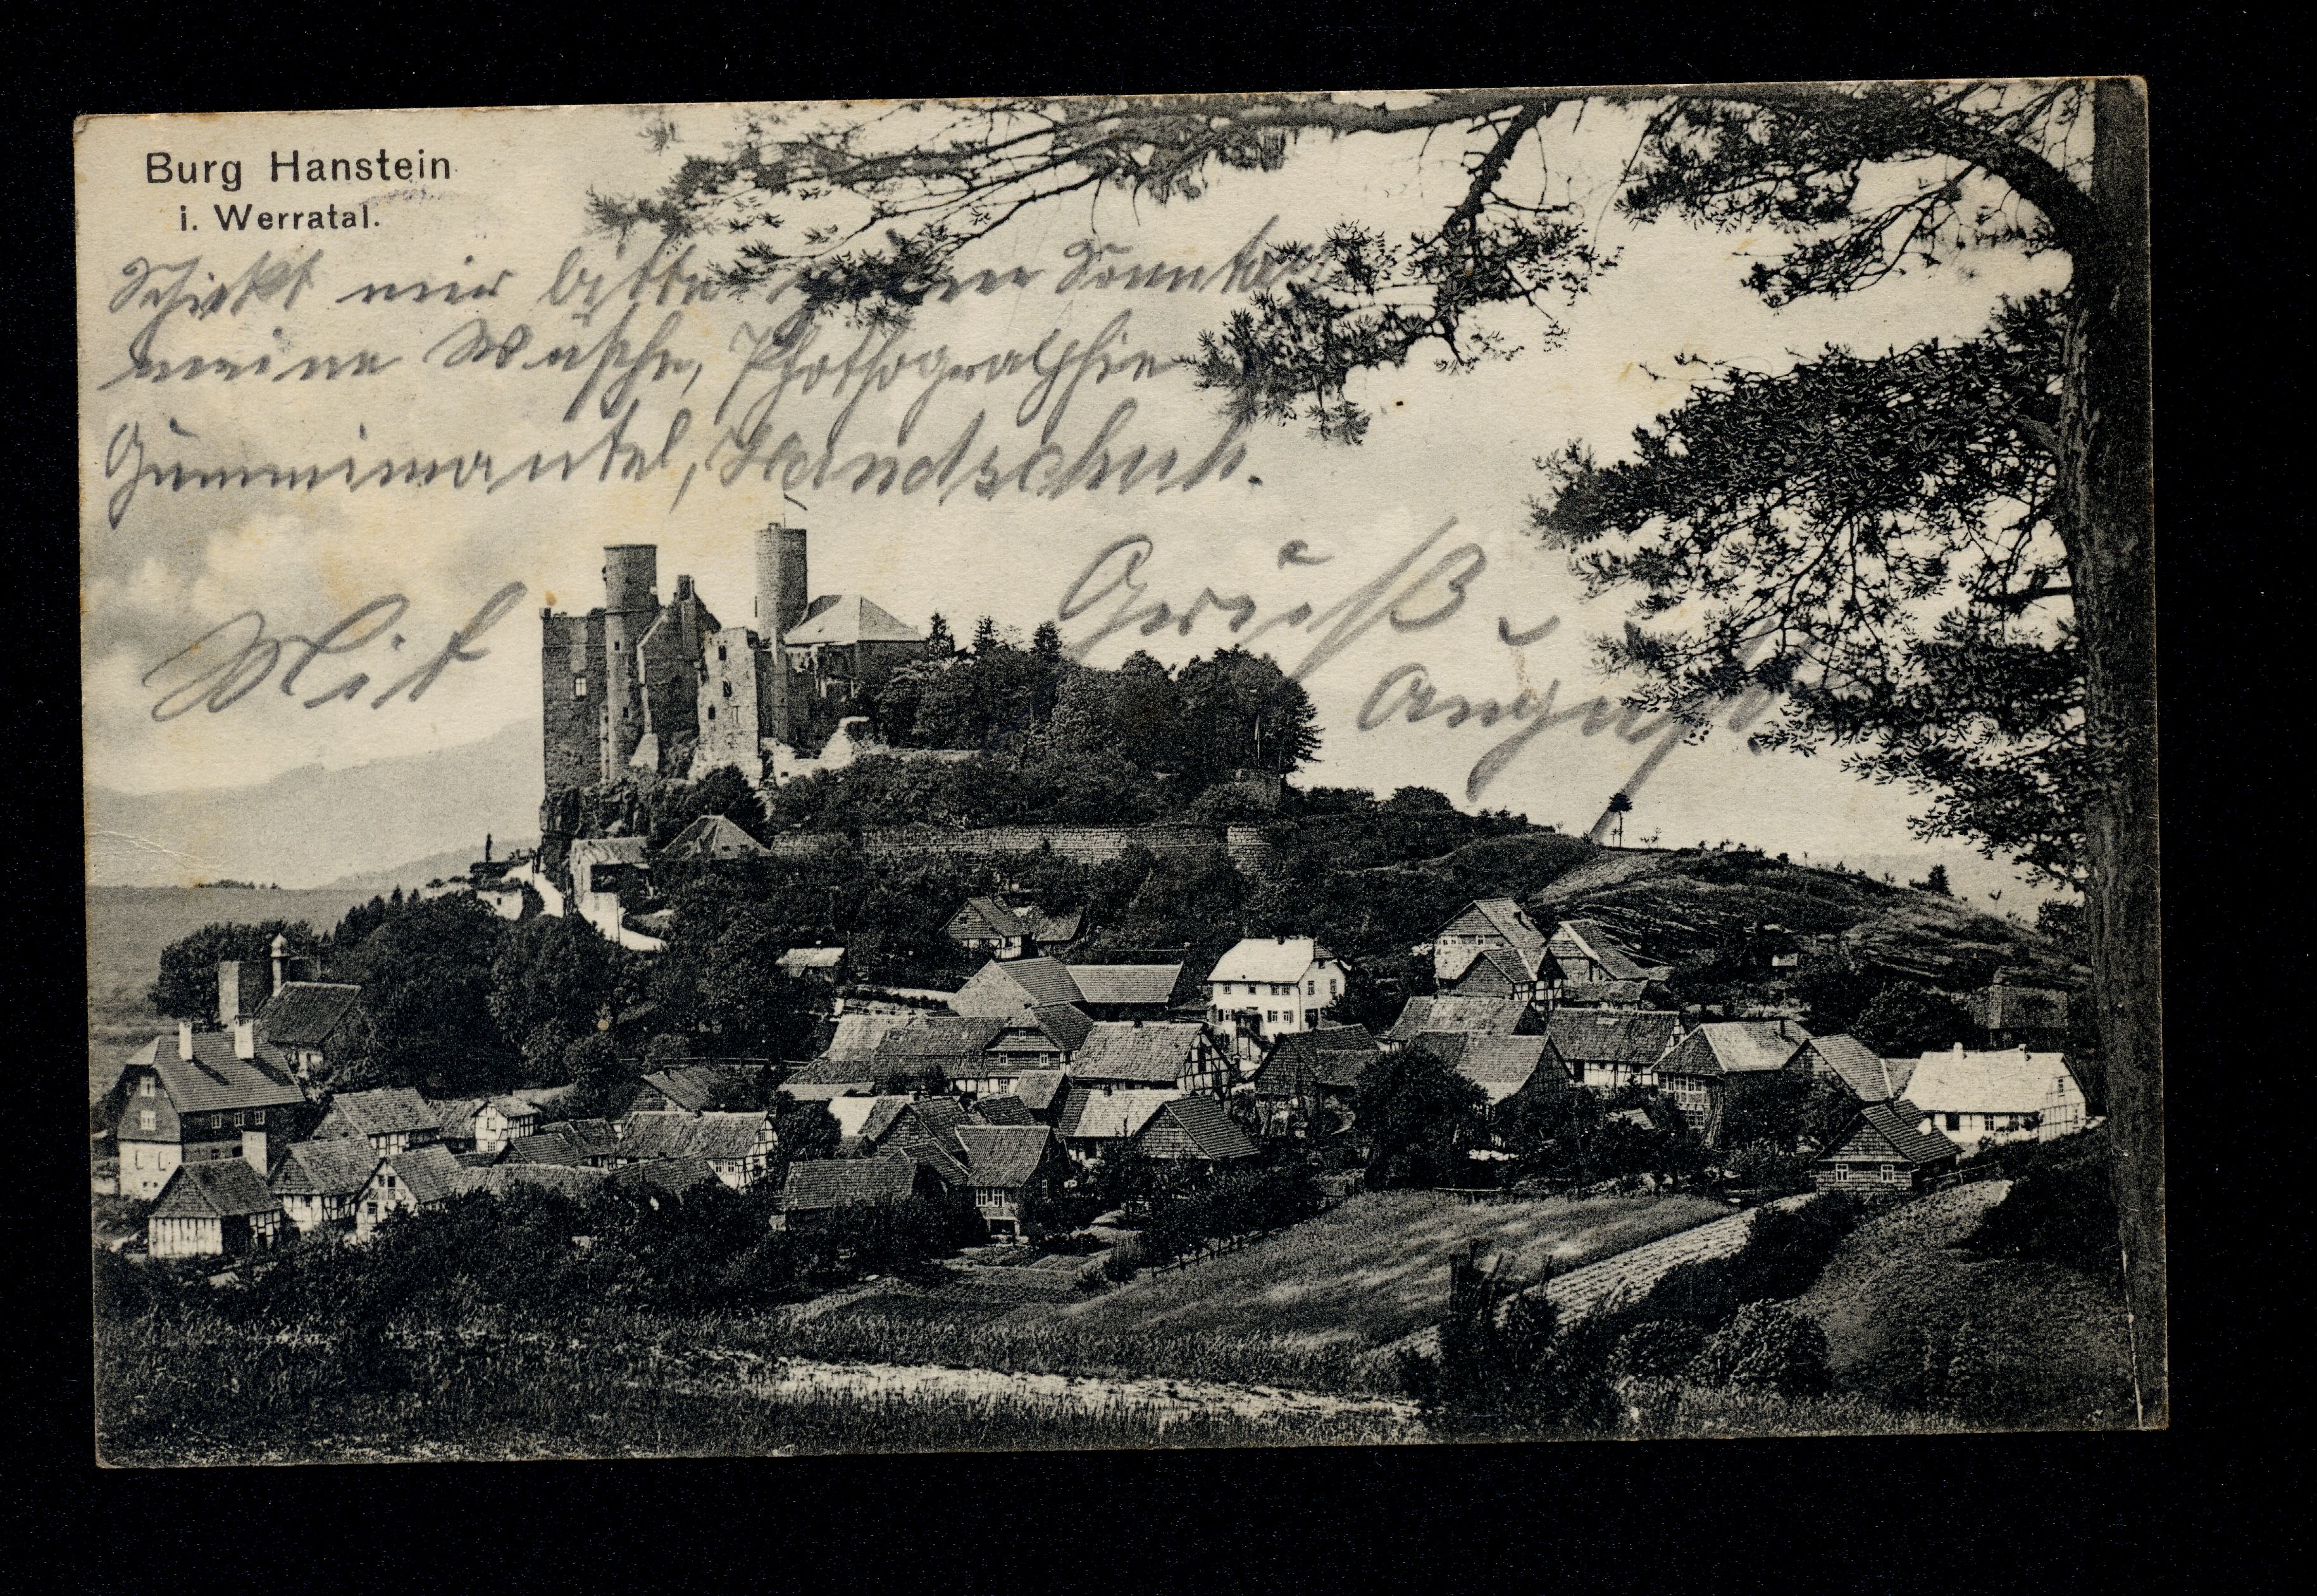 Burg Hanstein
i. Werratal.
Schickt mir bitte Sonntag
meine Wäsche, Photographie
Gummimantel, Handschuh.
Mit Gruß
August.